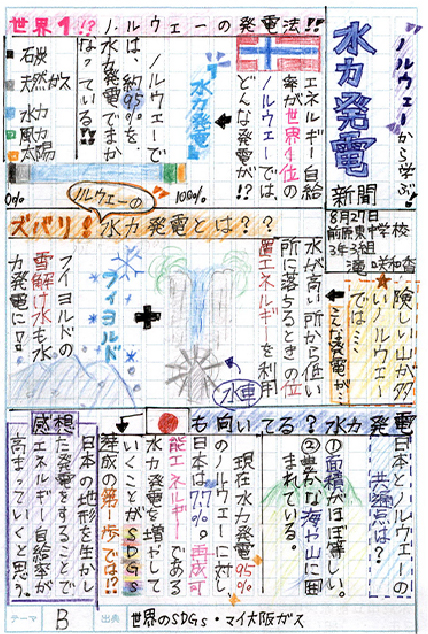 "ノルウェーから学ぶ!!
水力発電
新聞
8月27日
前原東中学校
3年3組
滝 咲和香
世界1!? ノルウェーの発電法!!
エネルギー自給
率が世界1位の
ノルウェーでは、
どんな発電が!?
水力発電
ノルウェーで
は、約95%を
水力発電でまか
なっている!!
石炭
天然ガス
水力
風力
太陽
0%
100%
ノルウェーの
ズバリ!水力発電とは??
険しい山が多
いノルウェー
では…、
こんな発電が…
水が高い所から低い
所に落ちるときの位
置エネルギーを利用
水車
フィヨルド
フィヨルドの
雪解け水も水
力発電に!!
日本も向いてる?水力発電
日本とノルウェーの
共通点は?
①面積がほぼ等しい。
②豊かな海や山に囲
まれている。
現在水力発電95%
のノルウェーに対し、
日本は7.7%。再成可
能エネルギーである
水力発電を増やして
いくことがSDGs
達成の第一歩では!?
感想
日本の地形を生かし
た発電をすることで
エネルギー自給率が
高まっていくと思う。
テーマ B 出典 世界のSDGs・マイ大阪ガス